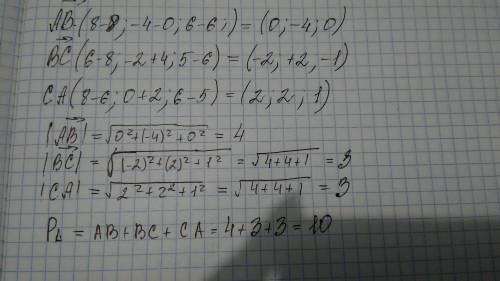 AB(8-8; -4-0; 6-6;) = (0; -4; 0)
BC(6-8; -2+4; 5-6) = (-2; +2, -1)
CA(8-6; 0+2; 6-5) = (2; 2, 1)
|AB| = √0²+(-4)²+0² = 4
|BC| = √(-2)²+(2)²+1² = √4+4+1 = 3
|CA| = √2²+2²+1² = √4+4+1 = 3
P△ = AB+BC+CA = 4+3+3 = 10